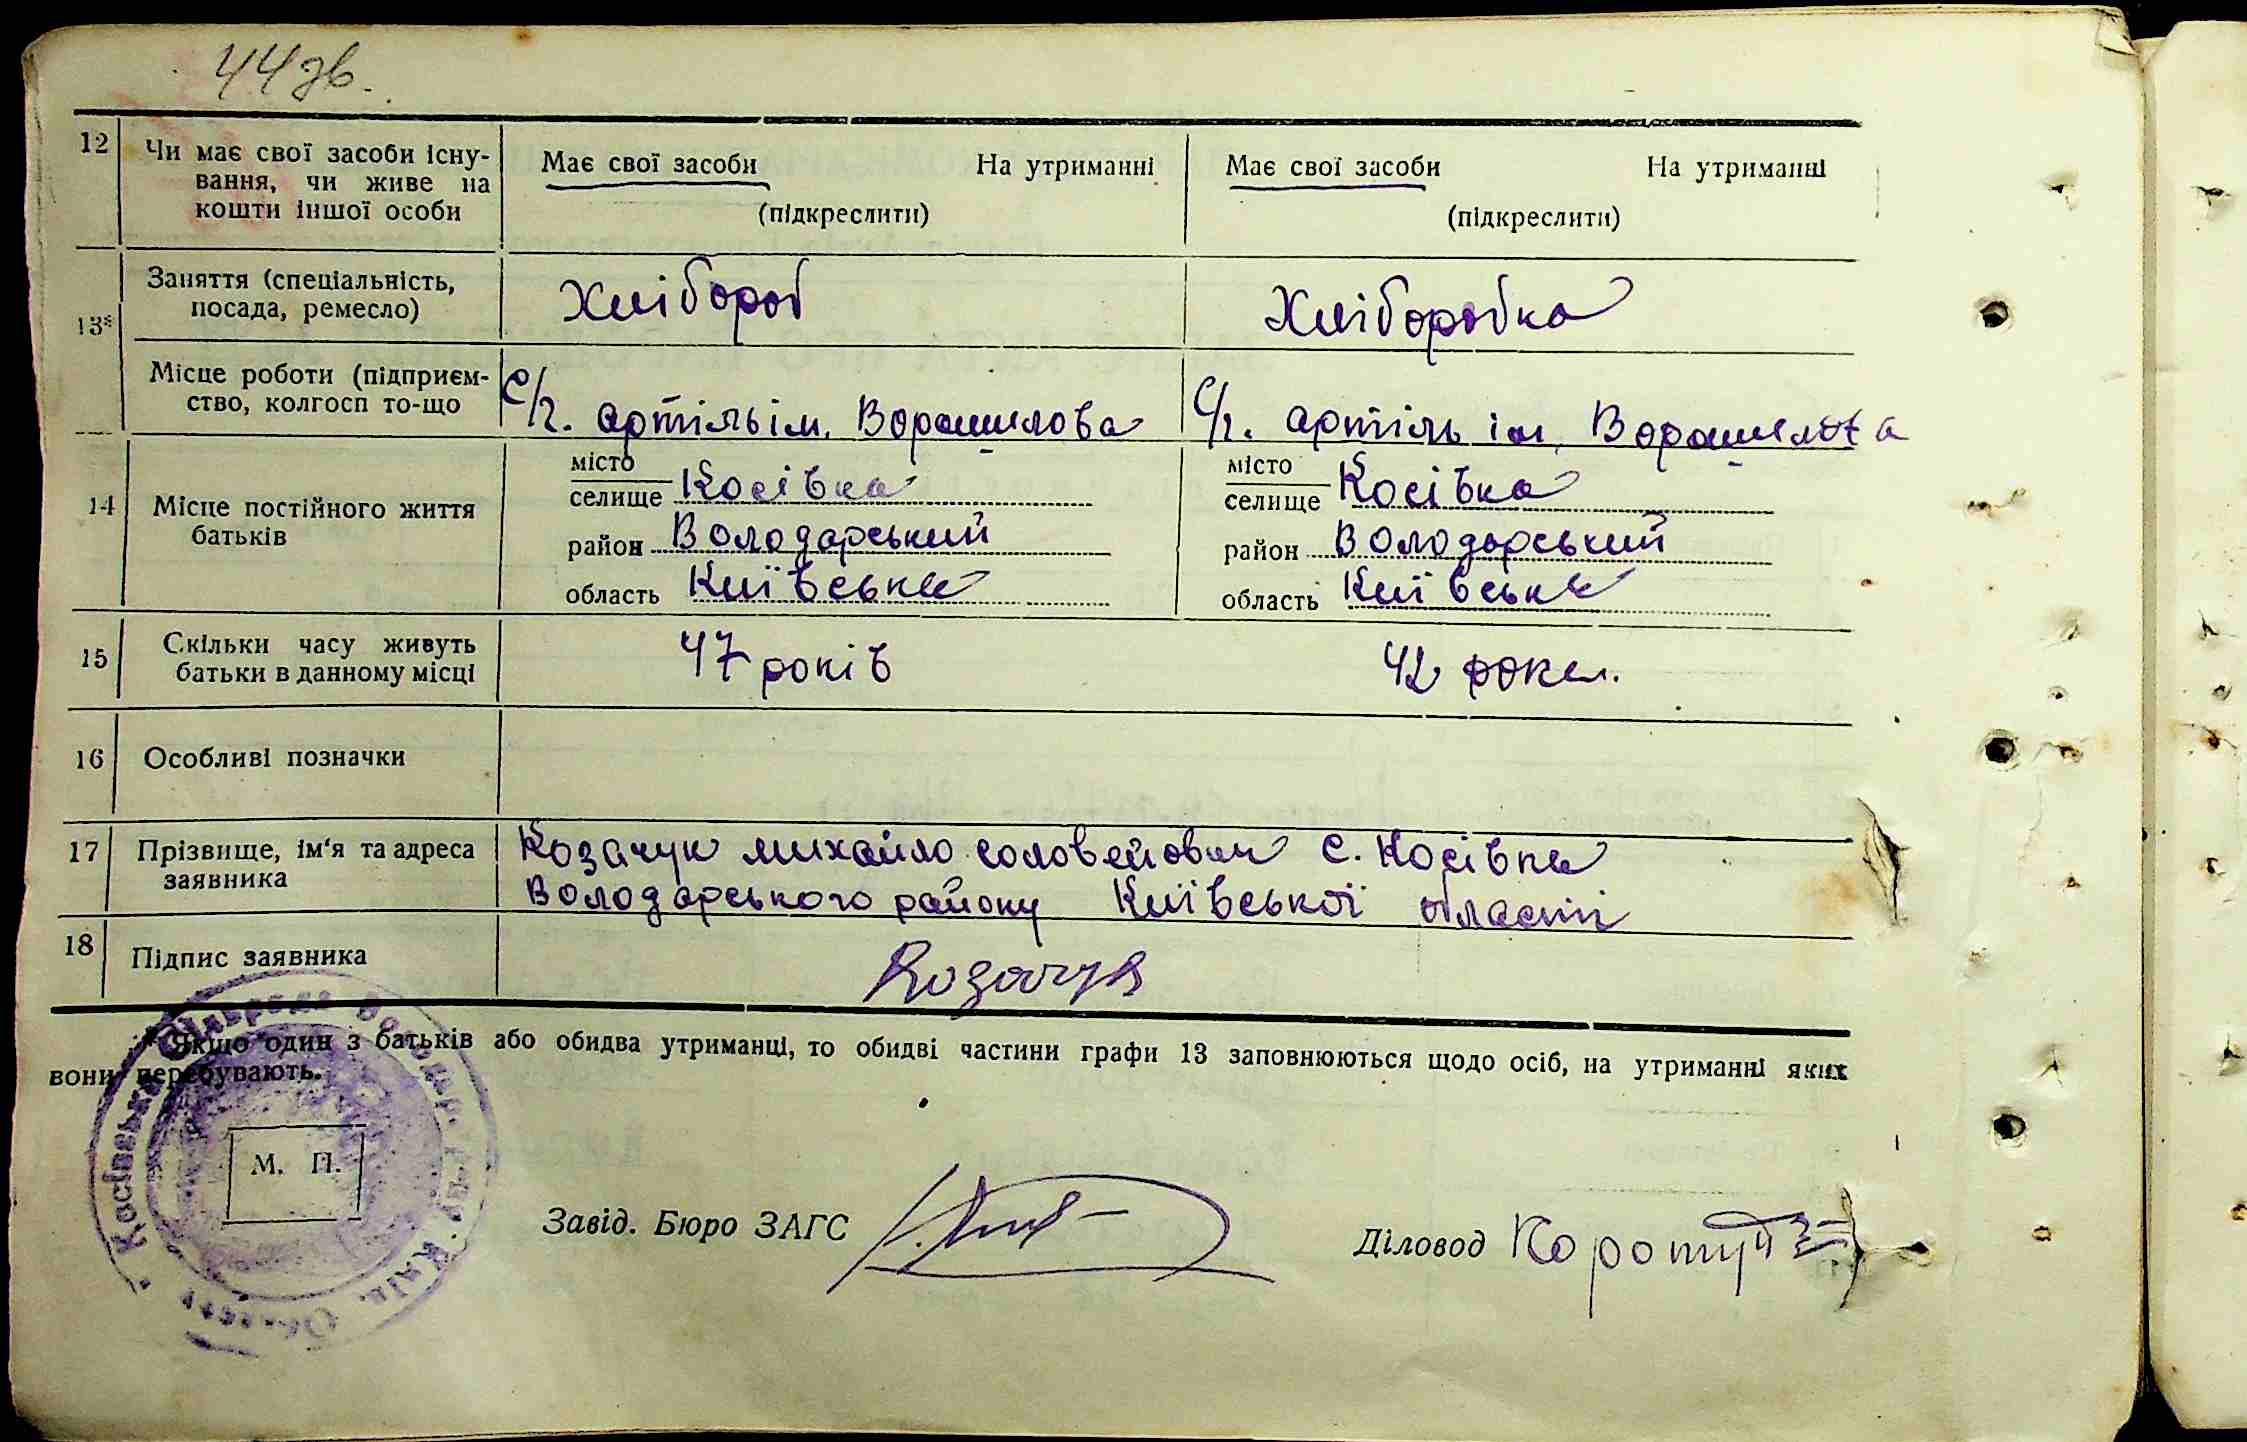 44 зв.
12 Чи має свої засоби існу-
вання, чи живе на
кошти іншої особи
Має свої засоби На утриманні
(підкреслити)
Має свої засоби На утриманні
(підкреслити)
13* Заняття (спеціальність,
посада, ремесло)
Хлібороб
Хліборобка
Місце роботи (підприєм-
ство, колгосп то-що
С/г. артіль ім. Ворошилова
С/г. артіль ім. Ворошилова
14 Місце постійного життя
батьків
місто
селище Косівка
район Володарський
область Київська
місто
селище Косівка
район Володарський
область Київська
15 Скільки часу живуть
батьки в данному місці
47 років
42 роки.
16 Особливі позначки
17 Прізвище, ім'я та адреса
заявника
Козачук Михайло Соловейович с. Косівка
Володарського району Київської області
18 Підпис заявника
Козачук
* Якщо один з батьків або обидва утриманці, то обидві частини графи 13 заповнюються щодо осіб, на утриманні яких
вони перебувають.
М. П.
Завід. Бюро ЗАГС
Діловод